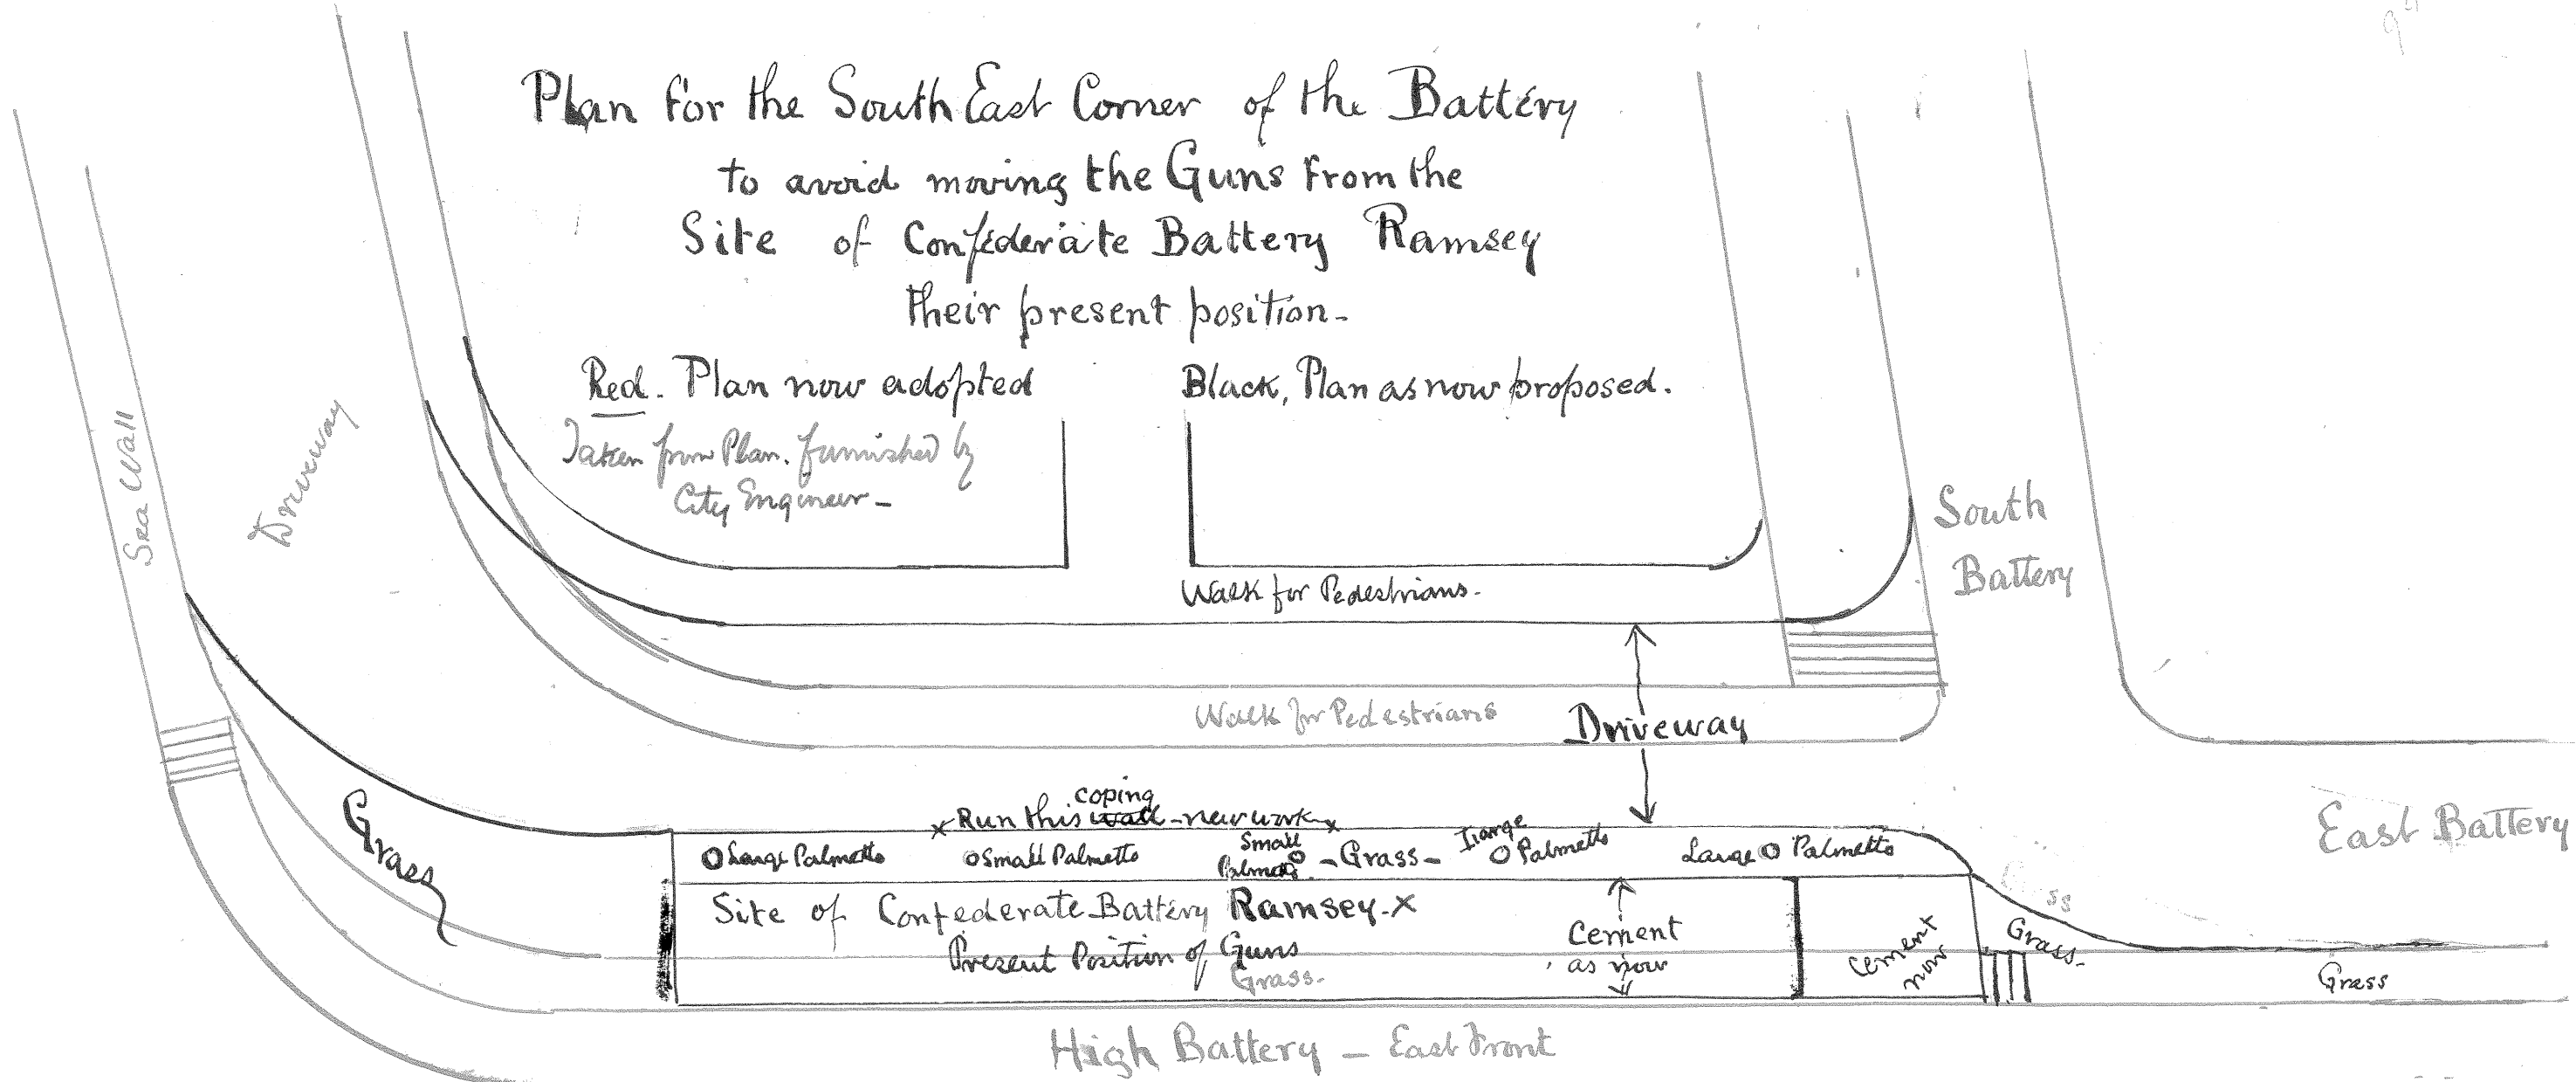 Plan for the South East Corner of the Battery
to avoid moving the Guns from the
Site of Confederate Battery Ramsey
their present position-
Red. Plan now adopted
Black, Plan as now proposed.
Taken from Plan. furnished by
City Engineer-
Sea Wall
Driveway
South
Battery
Walk for Pedestrians.
Walk for Pedestrians
Driveway
East Battery
Grass
coping
x Run this wall - new work x
Large Palmetto
Small Palmetto
Small
Palmetto
-Grass-
Large
Palmetto
Large Palmetto
Site of Confederate Battery Ramsey-X
Present Position of Guns
Grass-
Cement
as now
Cement
now
Grass-
Grass
High Battery - East Front